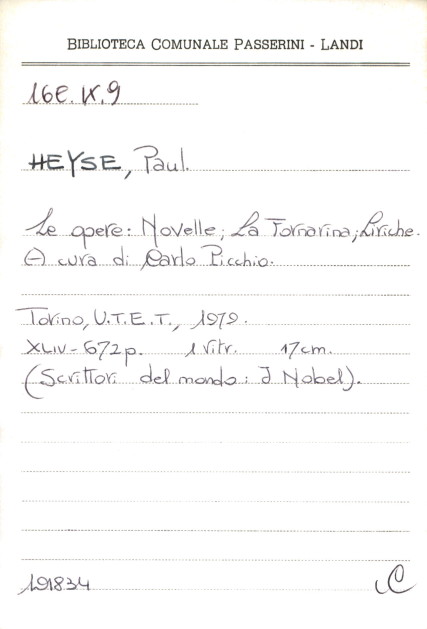 BIBLIOTECA COMUNALE PASSERINI - LANDI
16E. IX. 9
HEYSE, Paul.
Le opere: Novelle; La Fornarina; Liriche.
A cura di Carlo Picchio.
Torino, U.T.E.T., 1979.
XLIV-672p. 1 vitr. 17cm.
(Scrittori del mondo: I Nobel).
191834